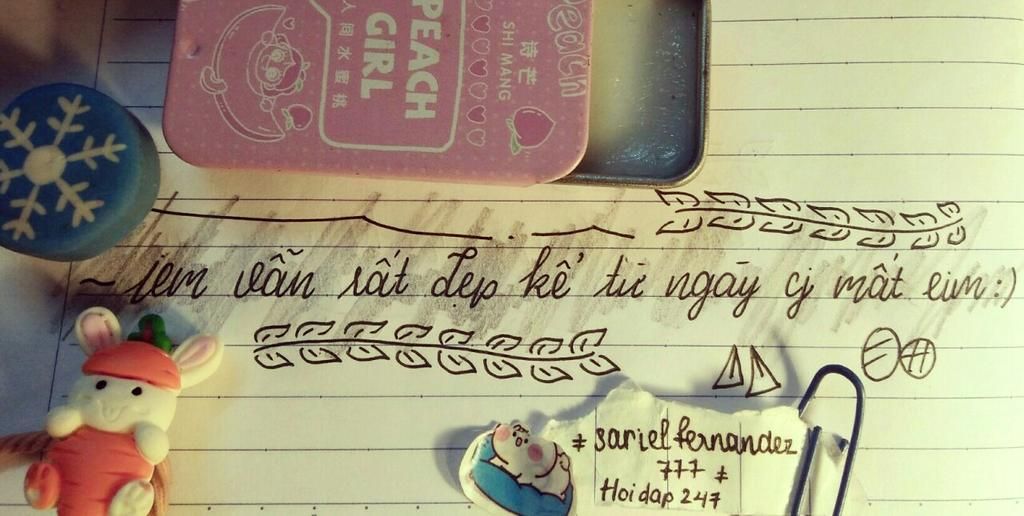 PEACH
GIRL
人间水蜜桃
诗芒
SHI MANG
Peach
~ iem vẫn rất đẹp kể từ ngày cj mất eim :)
≠ sariel fernandez
777 ≠
Hoidap 247